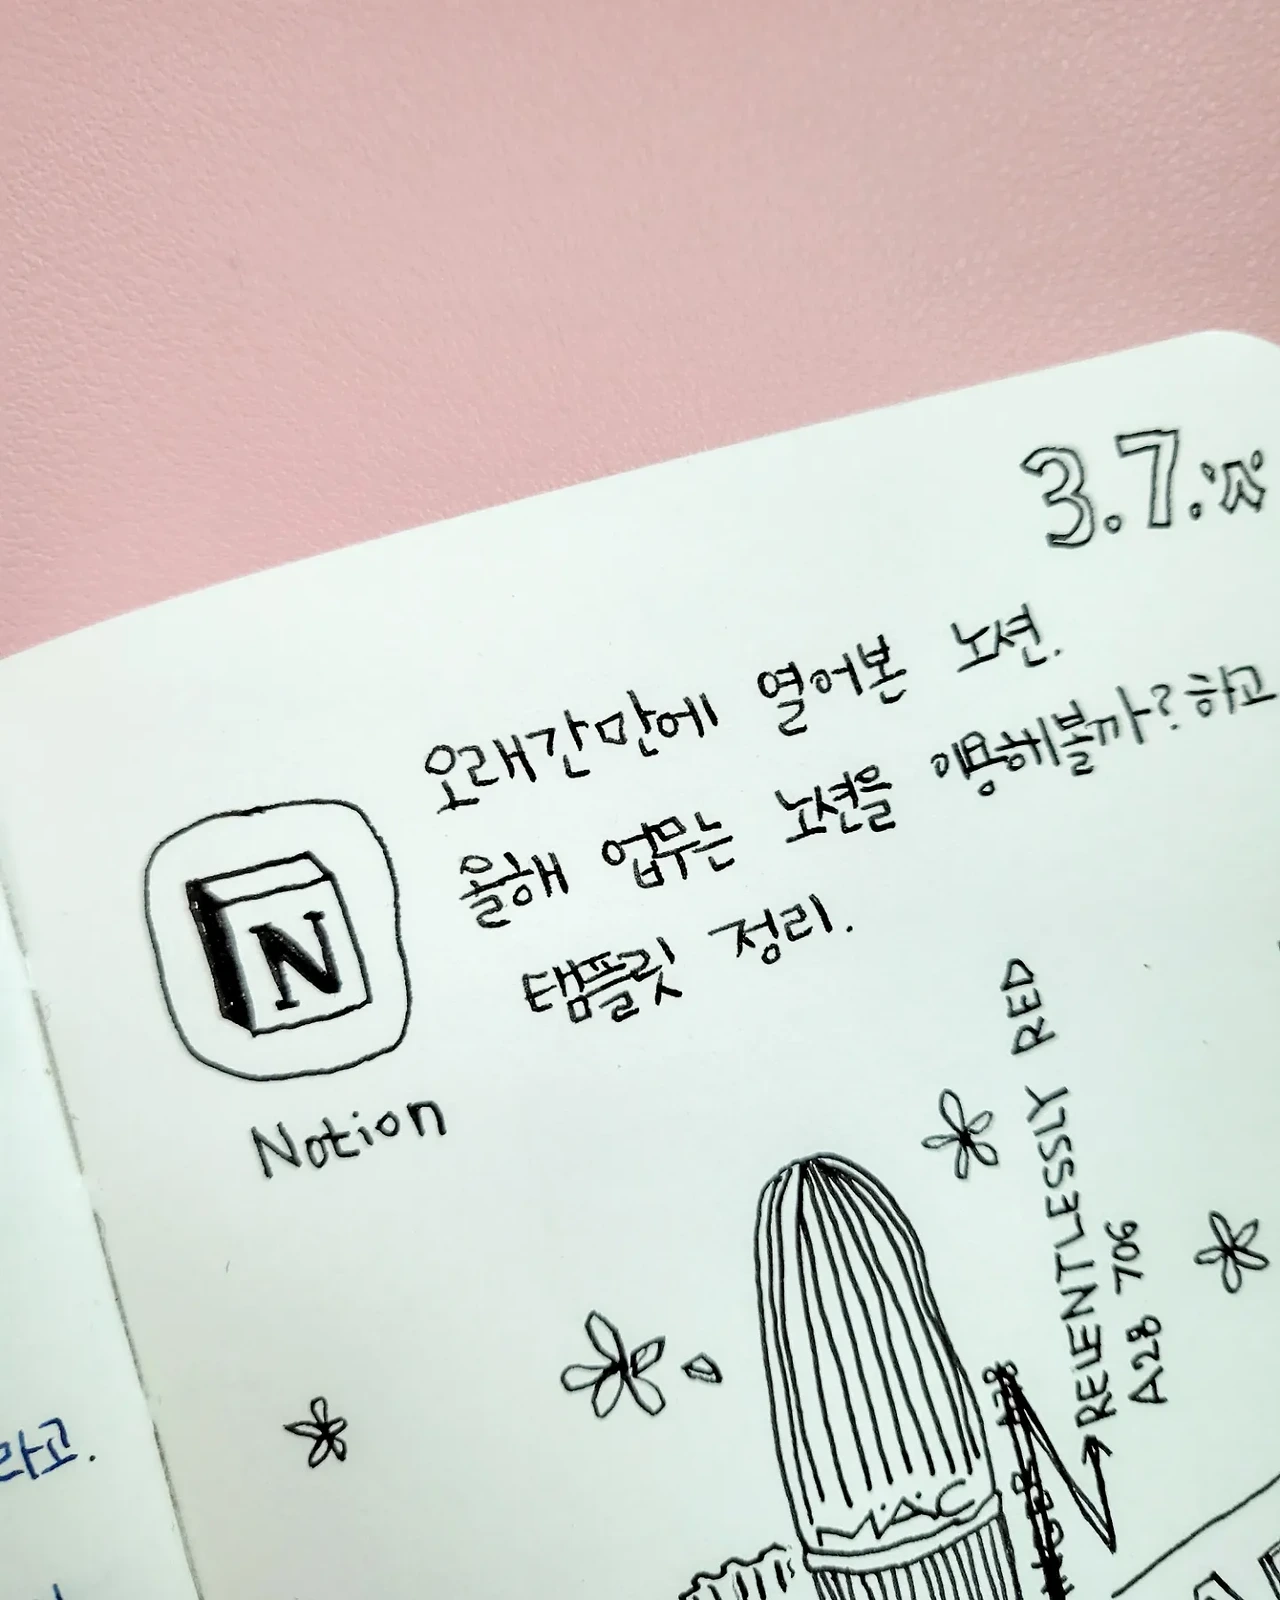 3.7.水
오래간만에 열어본 노션.
올해 업무는 노션을 이용해볼까? 하고
템플릿 정리.
N
Notion
RELENTLESSLY RED
A28 706
MAC
라고.